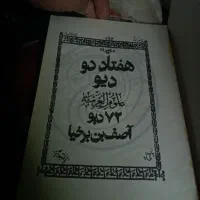 هفتاد دو
دیو
۷۲ دیو
آصف بن برخیا